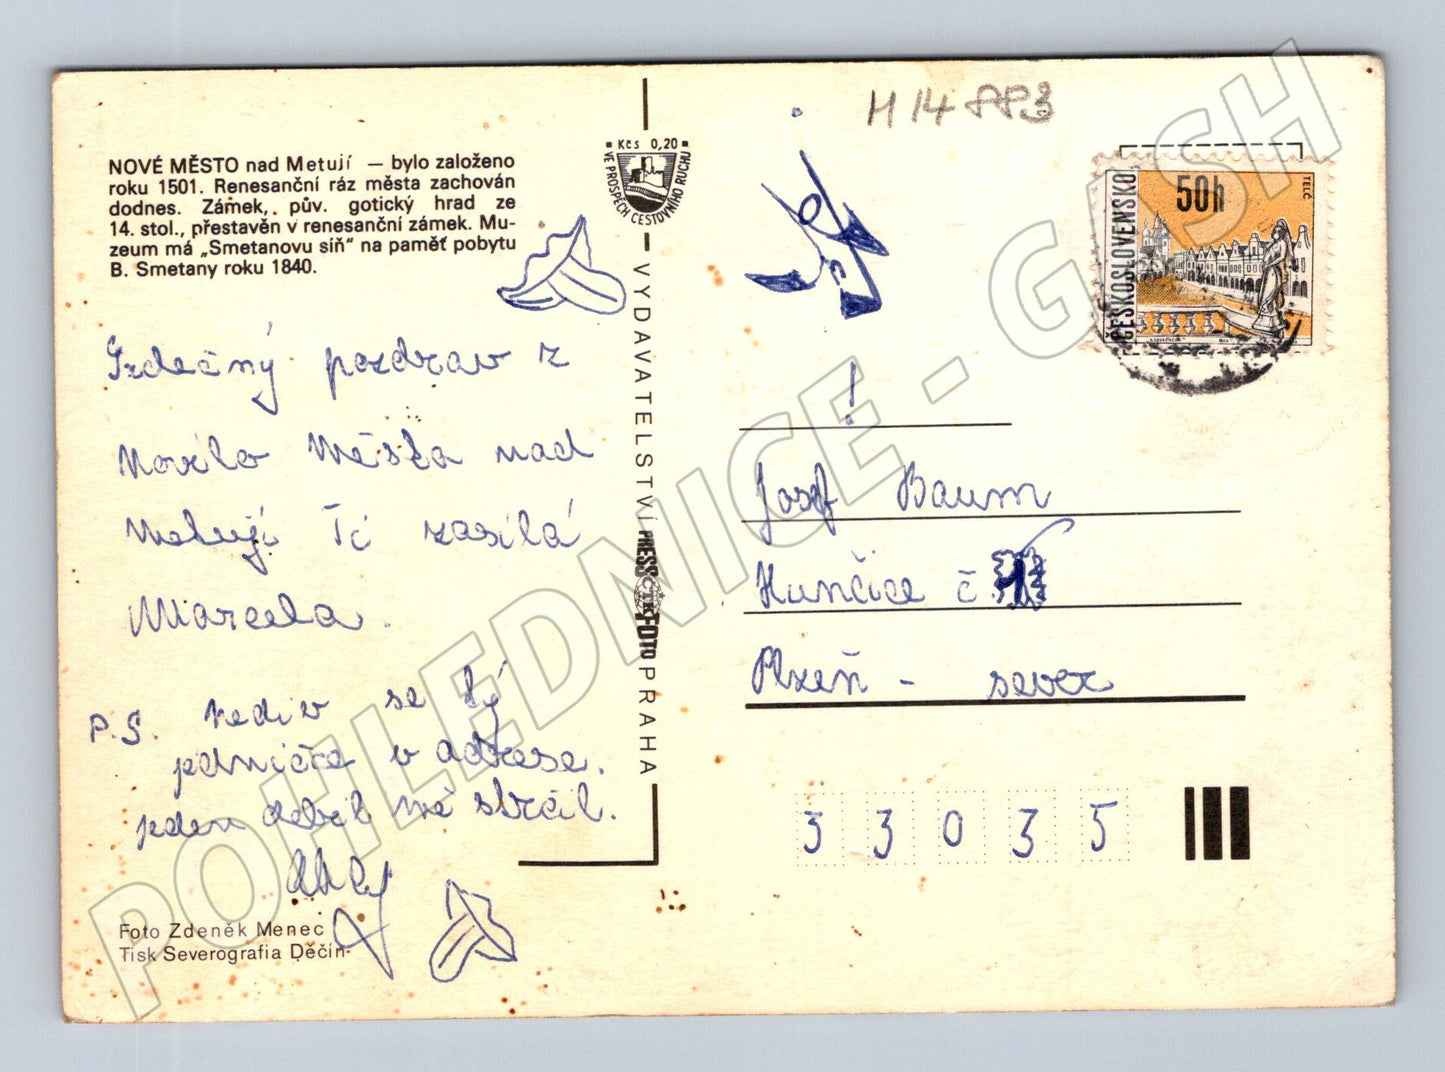 H 14 883
NOVÉ MĚSTO nad Metují — bylo založeno
roku 1501. Renesanční ráz města zachován
dodnes. Zámek, pův. gotický hrad ze
14. stol., přestavěn v renesanční zámek. Mu-
zeum má „Smetanovu síň“ na paměť pobytu
B. Smetany roku 1840.
Kčs 0,20
VE PROSPĚCH CESTOVNÍHO RUCHU
VYDAVATELSTVÍ PRESSFOTO PRAHA
ČTK
ČESKOSLOVENSKO
50h
TELČ
Srdečný pozdrav z
Nového Města nad
Metují Ti zasílá
Marcela.
P.S. nediv se tý
jedničce v adrese.
jeden debil mě strčil.
Ahoj
!
Josef Baum
Hunčice č
Plzeň - sever
33035
Foto Zdeněk Menec
Tisk Severografia Děčín
POHLEDNICE - GASH